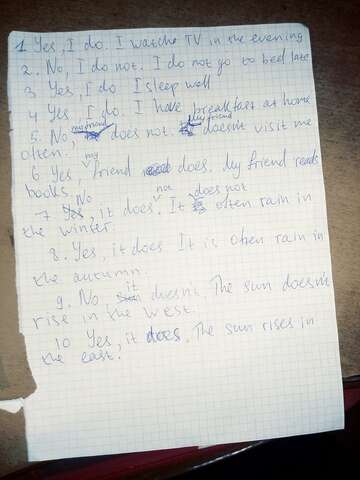 1 Yes, I do. I watche TV in the evening
2. No, I do not. I do not go to bed late
3 Yes, I do I sleep well
4 Yes, I do. I have breakfast at home
my friend my friend
5. No, does not. doesn't visit me
often.
my
6 Yes, friend does. My friend reads
books.
No not does not
7 Yes, it does. It often rain in
the winter.
8. Yes, it does It is often rain in
the autumn
it
9. No, doesn't. The sun doesn't
rise in the west.
10 Yes, it does. The sun rises in
the east.